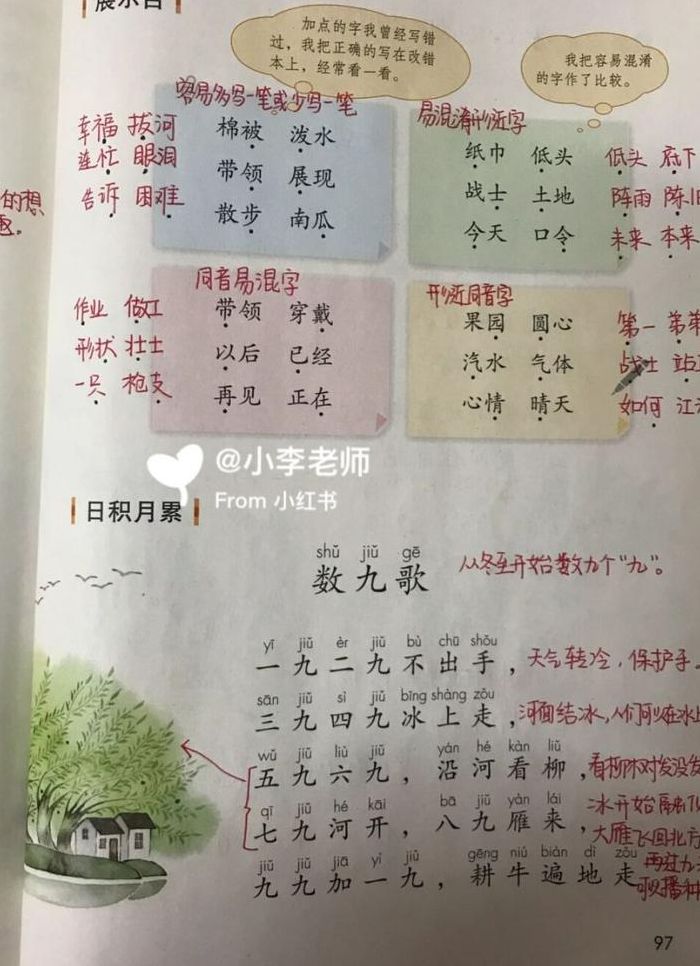 展示台
加点的字我曾经写错
过，我把正确的写在改错
本上，经常看一看。
我把容易混淆
的字作了比较。
容易多写一笔或少写一笔
易混淆形近字
幸福 拔河 棉被 泼水
连忙 眼泪 带领 展现
告诉 困难 散步 南瓜
纸巾 低头 低头 底下
战士 土地 阵雨 陈旧
今天 口令 未来 本来
的想
同音易混字
形近同音字
作业 做工 带领 穿戴
形状 壮士 以后 已经
一只 枪支 再见 正在
果园 圆心 第一 弟弟
汽水 气体 战士
心情 晴天 如何
@小李老师
From 小红书
日积月累
shǔ jiǔ gē
数九歌 从冬至开始数九个“九”。
yī jiǔ èr jiǔ bù chū shǒu
一九二九不出手， 天气转冷，保护手。
sān jiǔ sì jiǔ bīng shàng zǒu
三九四九冰上走， 河面结冰，人们可以在冰上
wǔ jiǔ liù jiǔ yán hé kàn liǔ
五九六九，沿河看柳， 看柳树发没发
qī jiǔ hé kāi bā jiǔ yàn lái
七九河开，八九雁来， 冰开始
大雁飞回北方
jiǔ jiǔ jiā yì jiǔ gēng niú biàn dì zǒu
九九加一九，耕牛遍地走 再过九
可以播种
97